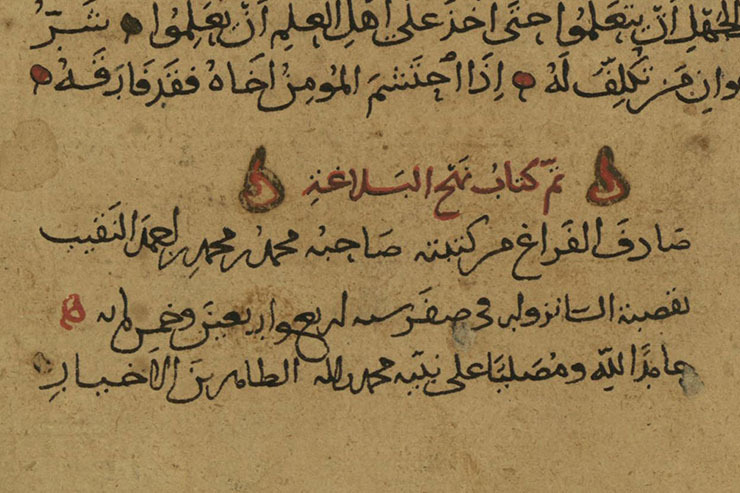 الجَهْلِ أَنْ يَتَعَلَّمُوا حَتَّى أَخَذَ عَلَى أَهْلِ العِلْمِ أَنْ يُعَلِّمُوا شَرُّ
وانِ مَنْ تُكُلِّفَ لَهُ إِذَا احْتَشَمَ المُؤمِنُ أَخَاهُ فَقَدْ فَارَقَهُ
تمّ كتابُ نَهْجِ البَلاغةِ
صَادفَ الفَراغ من كتبته صَاحبُه محمد بن محمد بن احمد النقيب
بقصبة السانزوار في صفر سنه اربع واربعين وخمس مايه
حامدًا للهِ ومُصَليًا على نبيّه محمد واله الطاهرين الاخيار